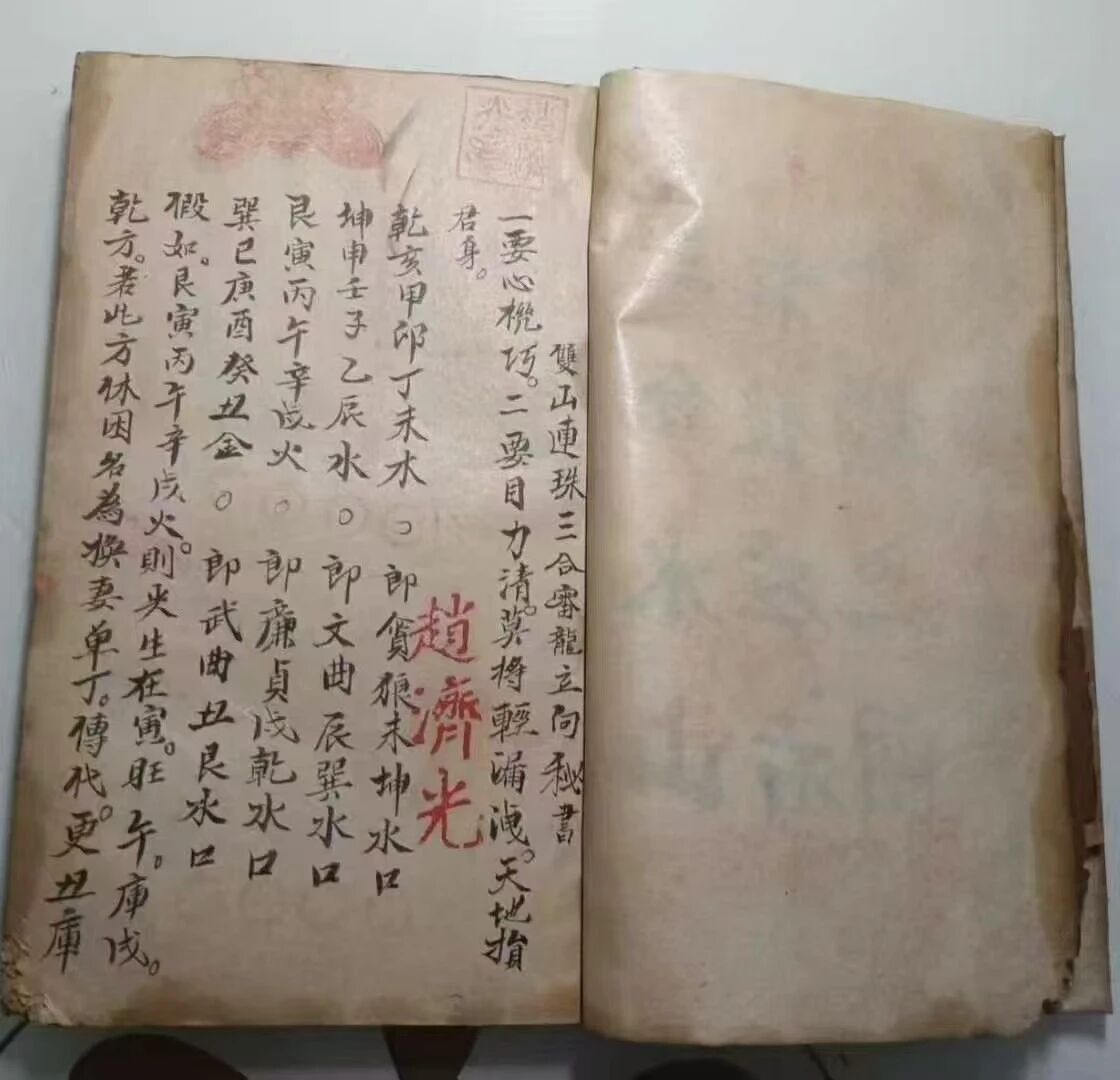 雙山連珠三合審龍立向秘書
一要心機巧。二要目力清。莫將輕漏洩。天地損
君身。
趙濟光
乾亥甲卯丁未木。郎貪狼未坤水口
坤申壬子乙辰水。郎文曲辰巽水口
艮寅丙午辛戌火。郎廉貞戌乾水口
巽巳庚酉癸丑金。郎武曲丑艮水口
假如。艮寅丙午辛戌火。則火生在寅。旺午。庫戌。
乾方。若此方休囚名為換妻单丁。傳代。更丑庫